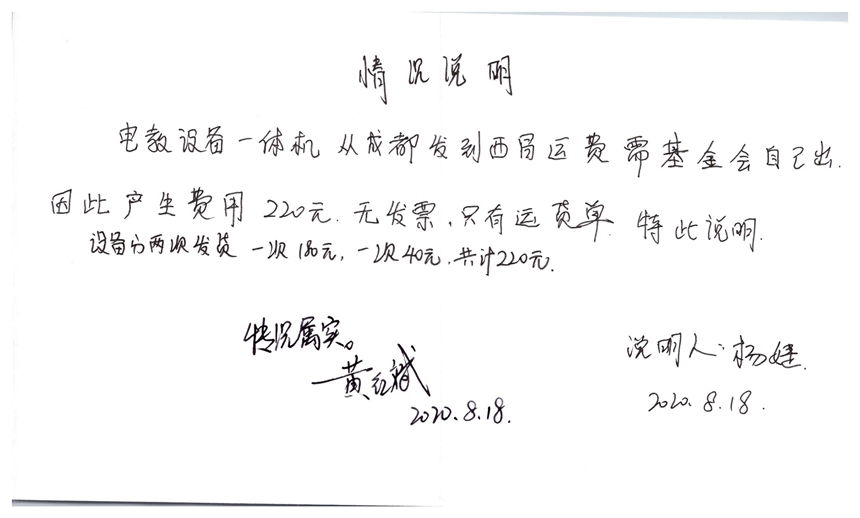 情况说明
电教设备一体机从成都发到西昌运费需基金会自己出.
因此产生费用220元.无发票,只有运货单.特此说明.
设备分两次发货 一次180元,一次40元.共计220元.
情况属实。
黄红斌
2020.8.18.
说明人:杨婕.
2020.8.18.